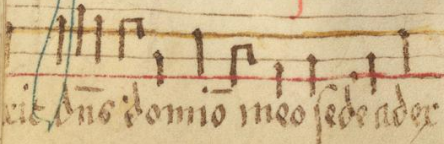 xit dn̄s domīo meo sede adex